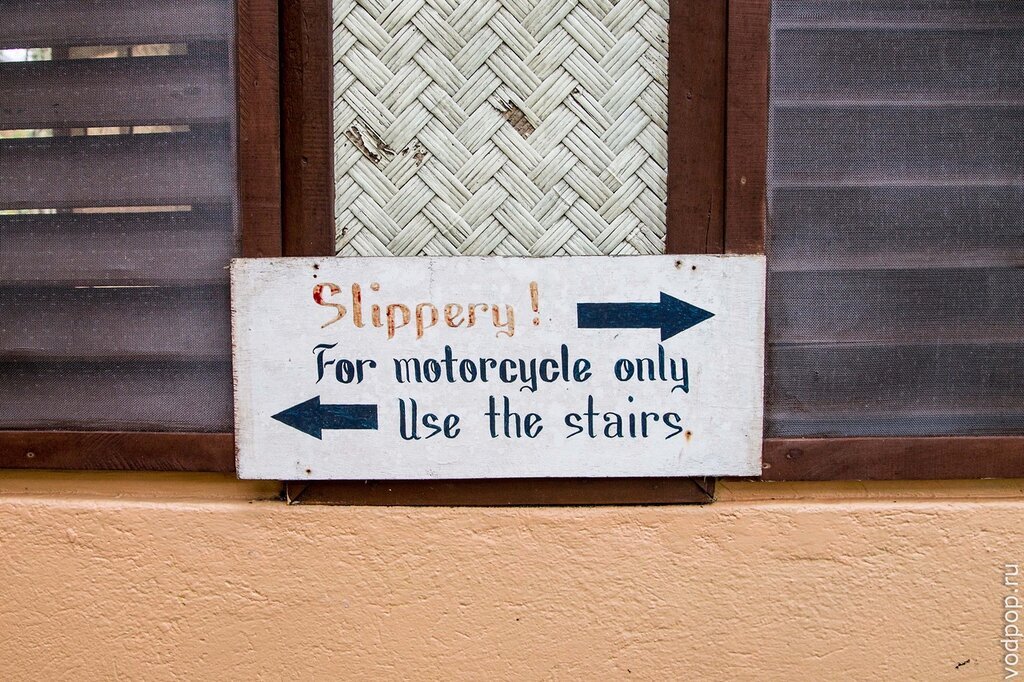 Slippery!
For motorcycle only
Use the stairs.
vodpop.ru